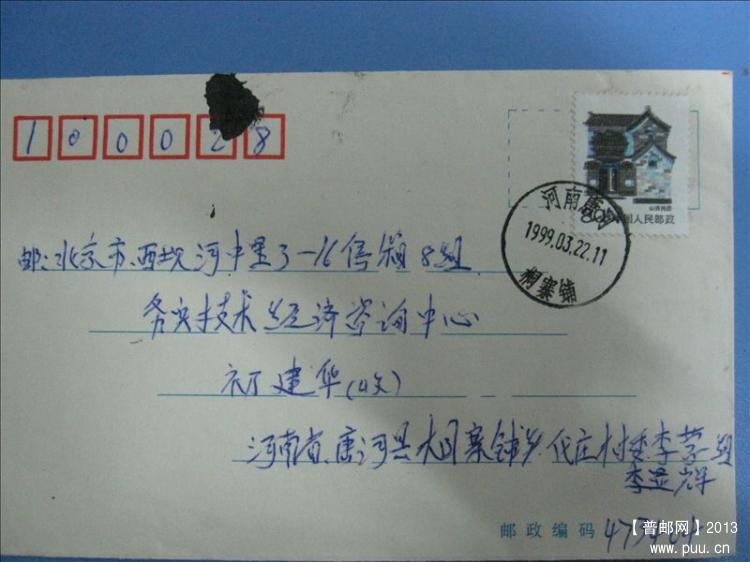 100028
山西民居
中国人民邮政
河南唐河
1999.03.22.11
桐寨铺
邮:北京市西坝河中里3-16信箱8组
务实技术经济咨询中心
建华(收)
河南省唐河县桐寨铺乡代庄村委李营组
李显辉
邮政编码
【普邮网】2013
www.puu.cn